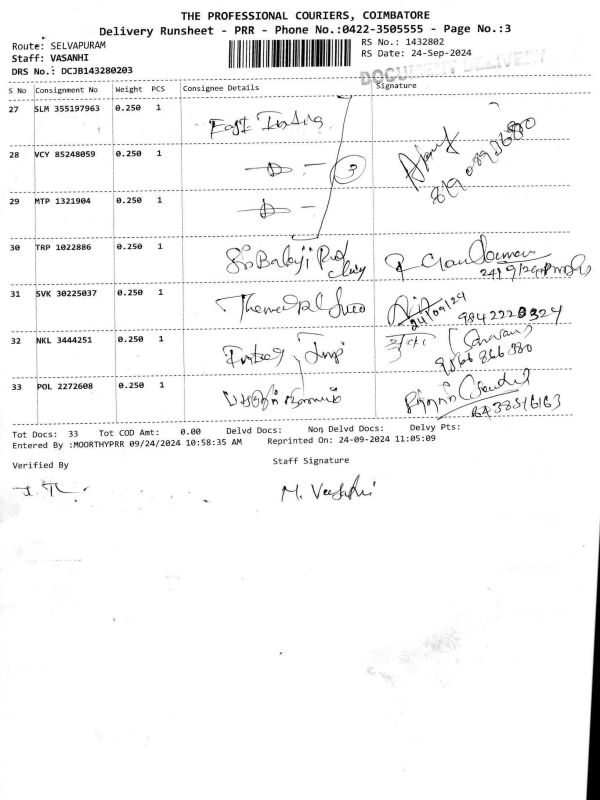 THE PROFESSIONAL COURIERS, COIMBATORE
Delivery Runsheet - PRR - Phone No.:0422-3505555 - Page No.:3
Route: SELVAPURAM
RS No.: 1432802
Staff: VASANHI
RS Date: 24-Sep-2024
DRS No.: DCJB143280203
DOCUMENT DELIVERY
S No Consignment No Weight PCS Consignee Details Signature
27 SLM 355197963 0.250 1 East India
28 VCY 85248059 0.250 1 3
29 MTP 1321904 0.250 1
30 TRP 1022886 0.250 1 Sri Balaji
31 SVK 30225037 0.250 1
24/09/24 9842220324
32 NKL 3444251 0.250 1
9566 866 380
33 POL 2272608 0.250 1
Tot Docs: 33 Tot COD Amt: 0.00 Delvd Docs: Non Delvd Docs: Delvy Pts:
Entered By :MOORTHYPRR 09/24/2024 10:58:35 AM Reprinted On: 24-09-2024 11:05:09
Verified By Staff Signature
M. Vasanhi